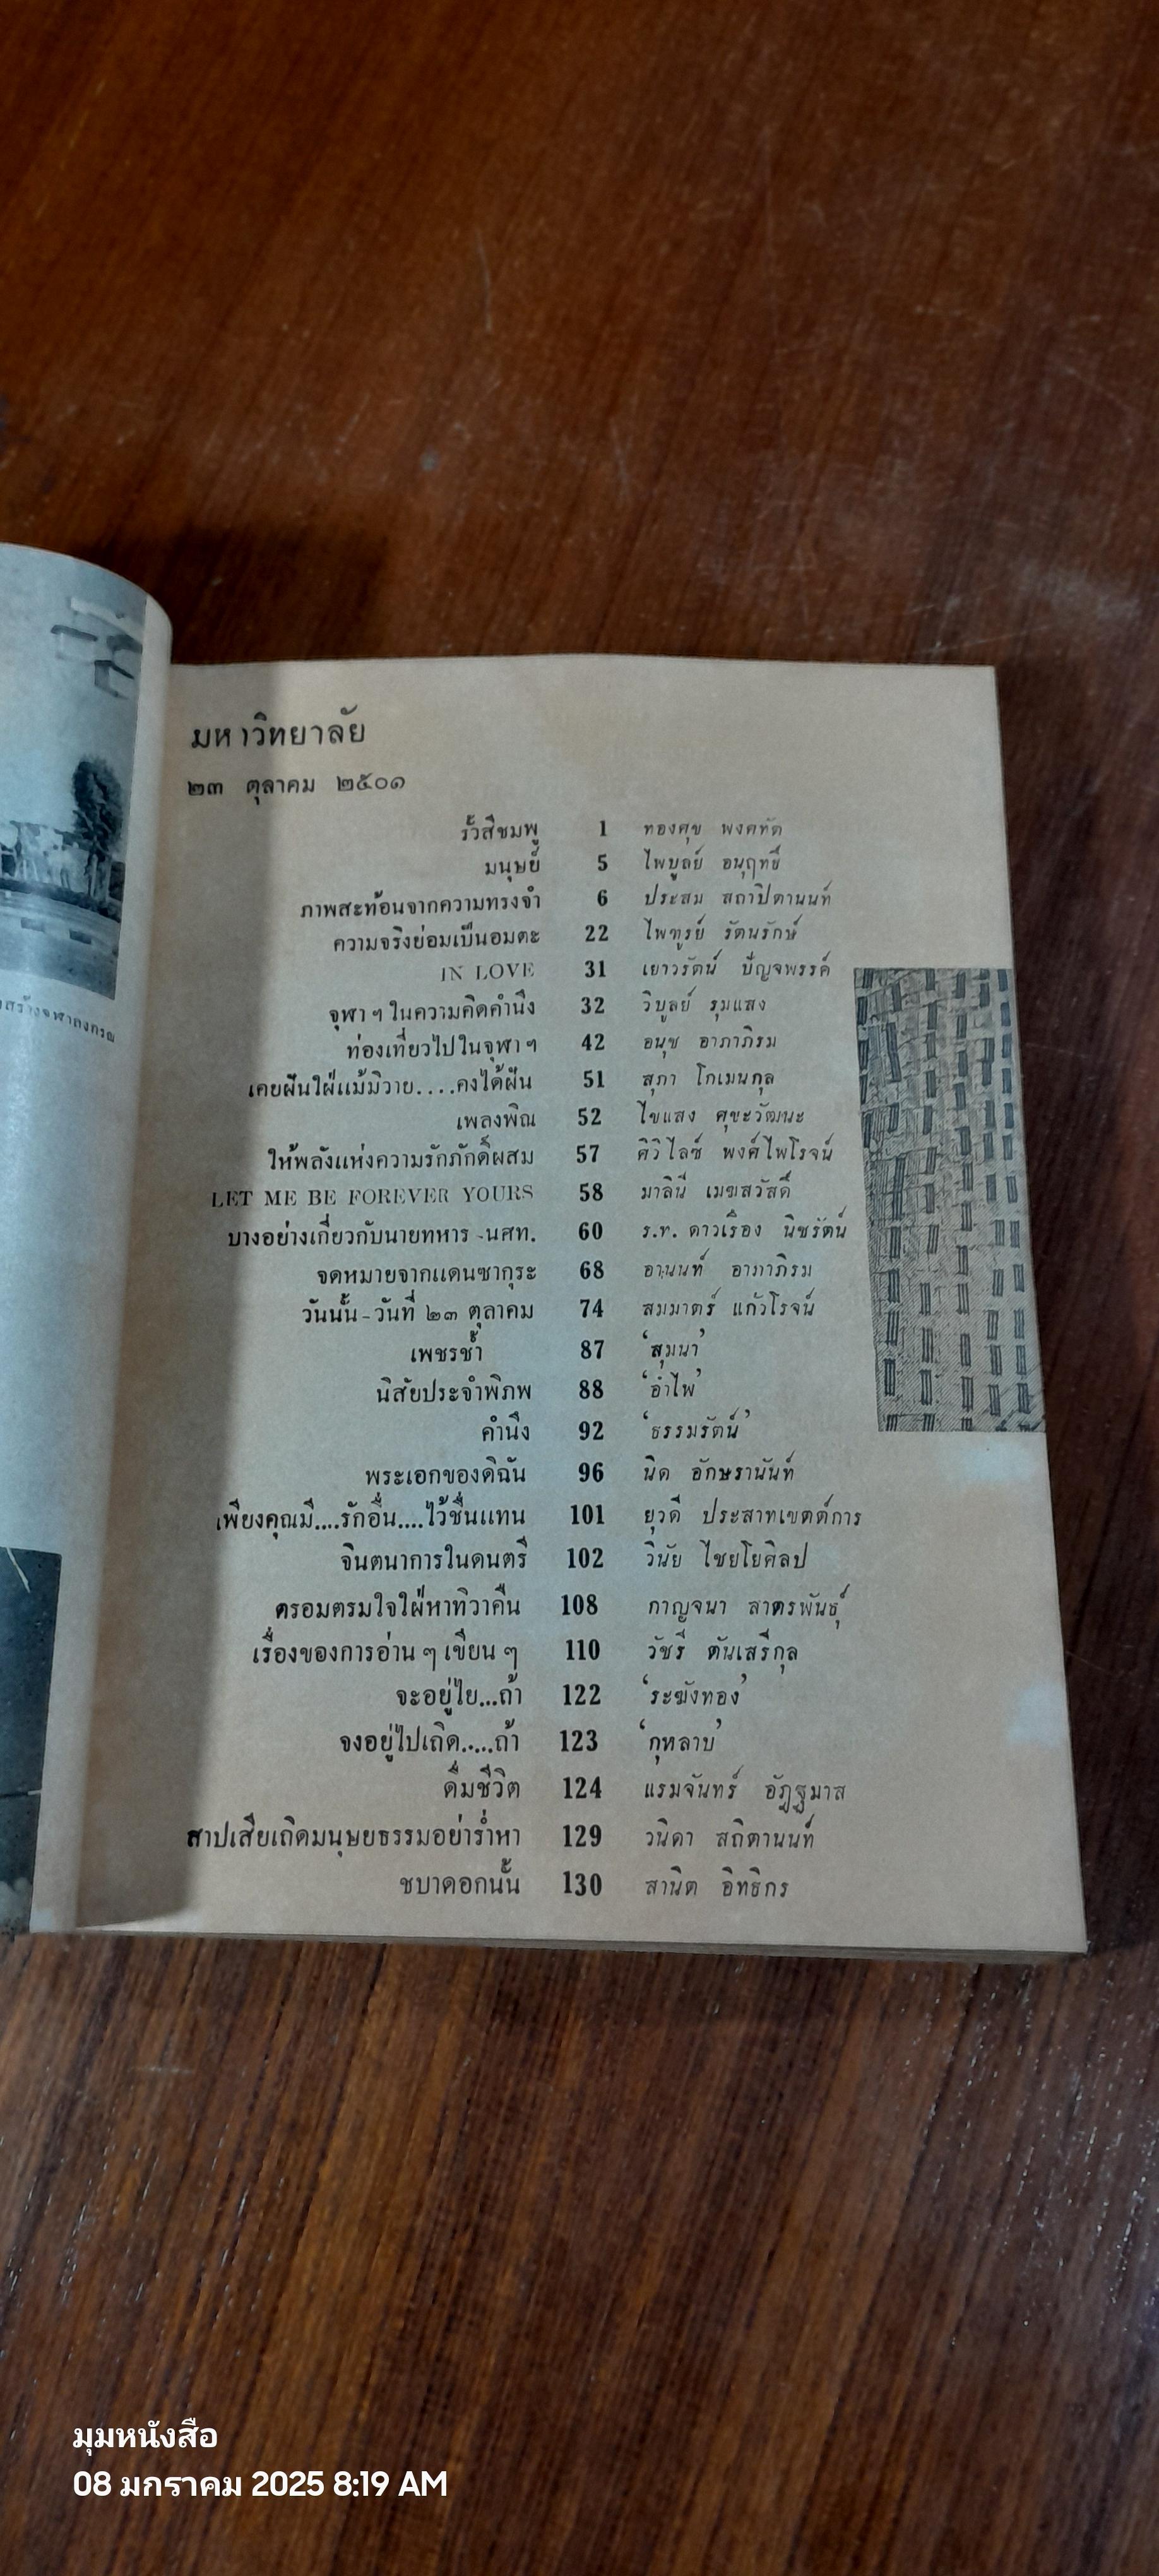 มหาวิทยาลัย
๒๓ ตุลาคม ๒๕๐๑
รั้วสีชมพู 1 ทองศุข พงศทัต
มนุษย์ 5 ไพบูลย์ อนุฤทธิ์
ภาพสะท้อนจากความทรงจำ 6 ประสม สถาปิตานนท์
ความจริงย่อมเป็นอมตะ 22 ไพฑูรย์ รัตนรักษ์
IN LOVE 31 เยาวรัตน์ ปัญจพรรค์
จุฬา ฯ ในความคิดคำนึง 32 วิบูลย์ รุมแสง
ท่องเที่ยวไปในจุฬา ฯ 42 อนุช อาภาภิรม
เคยฝันใฝ่แม้มิวาย....คงได้ฝัน 51 สุภา โกเมนกุล
เพลงพิณ 52 ไขแสง ศุขะวัฒนะ
ให้พลังแห่งความรักภักดิ์ผสม 57 ศิวิไลซ์ พงศ์ไพโรจน์
LET ME BE FOREVER YOURS 58 มาลินี เมฆสวัสดิ์
บางอย่างเกี่ยวกับนายทหาร -นศท. 60 ร.ท. ดาวเรือง นิชรัตน์
จดหมายจากแดนซากุระ 68 อานนท์ อาภาภิรม
วันนั้น-วันที่ ๒๓ ตุลาคม 74 สมมาตร์ แก้วโรจน์
เพชรช้ำ 87 ‘สุมนา’
นิสัยประจำพิภพ 88 ‘อำไพ’
คำนึง 92 ‘ธรรมรัตน์’
พระเอกของดิฉัน 96 นิด อักษรานันท์
เพียงคุณมี....รักอื่น....ไว้ชื่นแทน 101 ยุวดี ประสาทเขตต์การ
จินตนาการในดนตรี 102 วินัย ไชยโยศิลป
ตรอมตรมใจใฝ่หาทิวาคืน 108 กาญจนา สาตรพันธุ์
เรื่องของการอ่าน ๆ เขียน ๆ 110 วัชรี ตันเสรีกุล
จะอยู่ไย...ถ้า 122 ‘ระฆังทอง’
จงอยู่ไปเถิด.....ถ้า 123 ‘กุหลาบ’
ดื่มชีวิต 124 แรมจันทร์ อัฎฐมาส
สาปเสียเถิดมนุษยธรรมอย่าร่ำหา 129 วนิดา สถิตานนท์
ชบาดอกนั้น 130 สานิต อิทธิกร
มุมหนังสือ
08 มกราคม 2025 8:19 AM